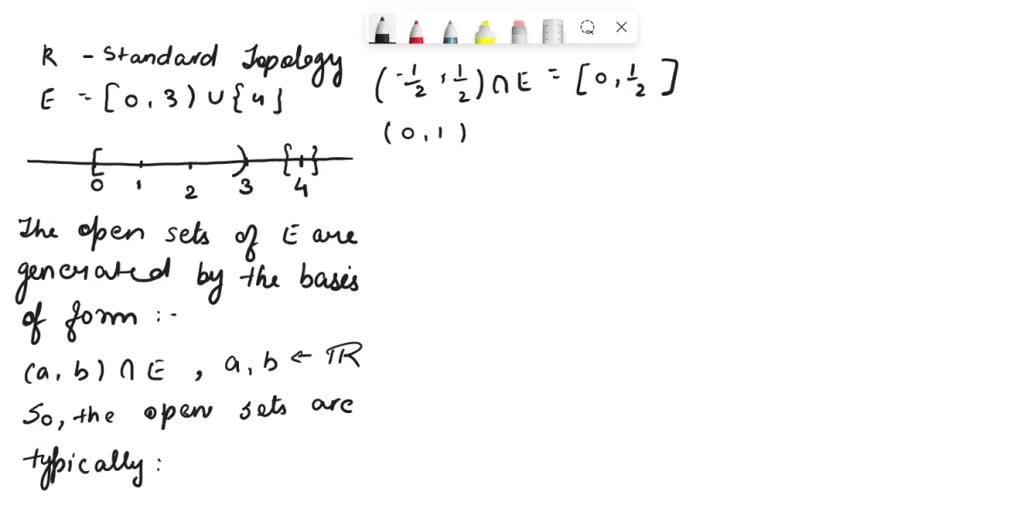 R - Standard Topology
E = [0, 3) ∪ {4}
0 1 2 3 4
The open sets of E are
generated by the basis
of form :-
(a, b) ∩ E , a, b ← IR
So, the open sets are
typically :
(-1/2, 1/2) ∩ E = [0, 1/2]
(0, 1)